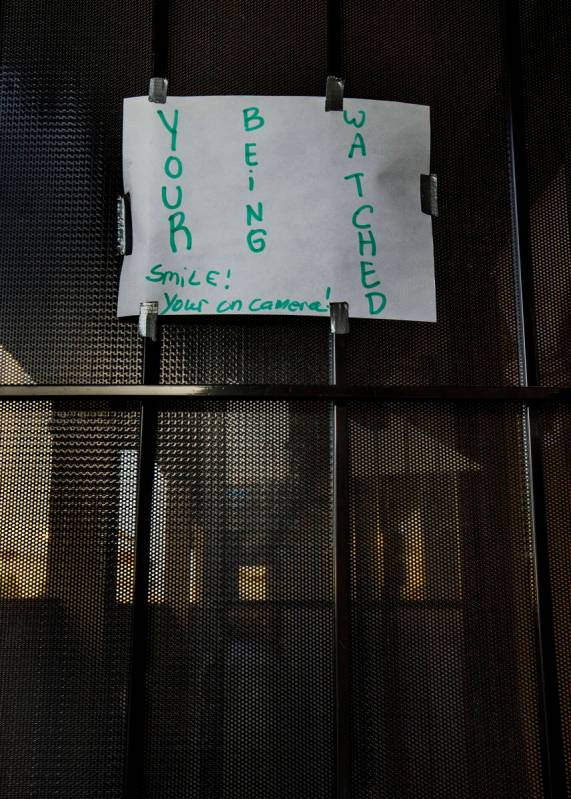 YOUR
BEiNG
WATCHED
SMiLE!
Your on camera!